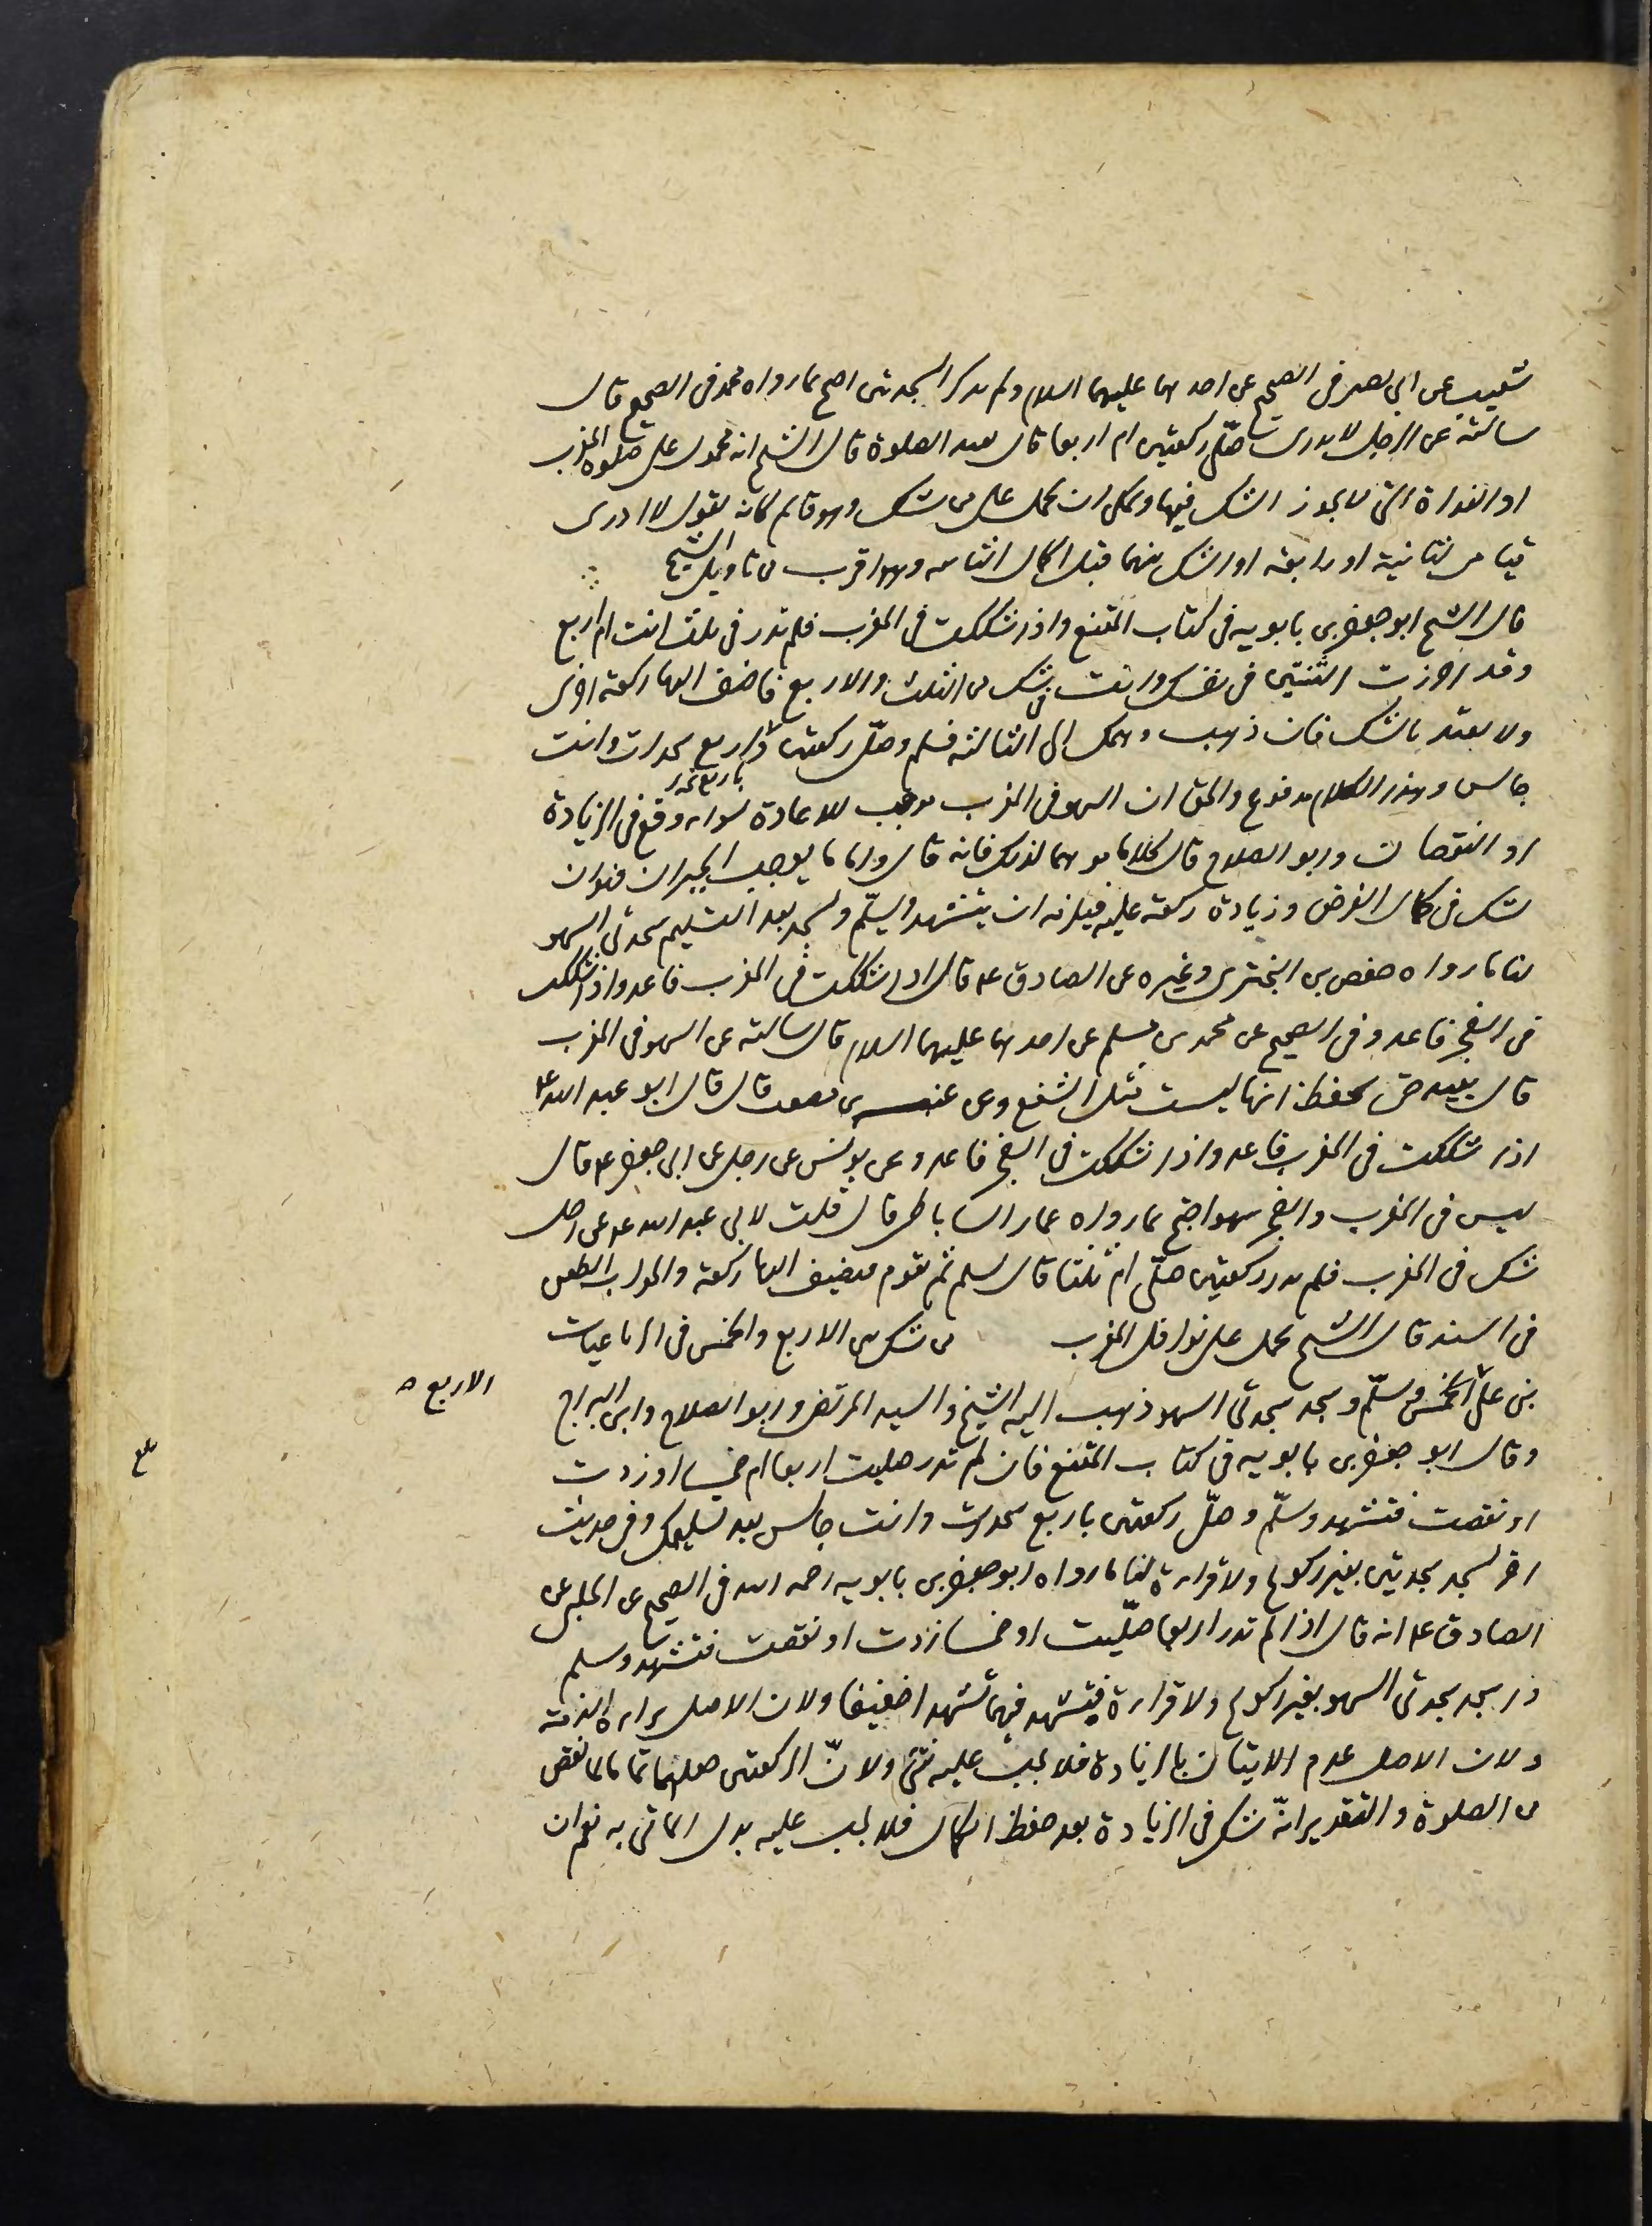 شعيب عن ابى بصير فى الصحيح عن احدهما عليهما السلام ولم يذكر السجدتين احتج بما رواه محمد فى الصحيح قال
سالته عن الرجل لا يدرى صلّى ركعتين ام اربعا قال يعيد الصلوة قال الشيخ انه محمول على صلوة المغرب
او الغداة التى لا يجوز الشك فيها ويمكن ان يحمل على من شك وهو قائم كانه يقول لا ادرى
قيامى لثانية او رابعة او الشك بينهما قبل اكمال الثانيه وهو اقرب من تاويل الشيخ
قال الشيخ ابو جعفر بن بابويه فى كتاب المقنع واذا شككت فى المغرب فلم تدر فى ثلث انت ام اربع
وقد احرزت الثنتين فى نفسك وانت فى شك من الثلث والاربع فاضف اليها ركعة اخرى
ولا يعتد بالشك فان ذهب وهمك الى الثالثة فسلم وصلّ ركعتين باربع سجدات وانت
جالس وهذا الكلام مدفوع والحق ان السهو فى المغرب موجب للاعادة سواء وقع فى الزيادة
او النقصان وابو الصلاح قال كلاما يوهما لذلك فانه قال واما ما يوجب الجبران فهو ان
شك فى كمال الفرض وزيادة ركعة عليه فيلزمه ان يتشهد ويسلّم ويسجد بعد التسليم سجدتى السهو
لنا ما رواه حفص بن البخترى وغيره عن الصادق ع قال اذا شككت فى المغرب فاعد واذا شككت
فى الفجر فاعد وفى الصحيح عن محمد بن مسلم عن احدهما عليهما السلام قال سالته عن السهو فى المغرب
قال يعيد حتى يحفظ انها ليست مثل الشفع وعن عنبسه بن مصعب قال قال ابو عبد الله ع
اذا شككت فى المغرب فاعد واذا شككت فى الفجر فاعد وعن يونس عن رجل عن ابى جعفر ع قال
ليس فى المغرب والفجر سهو احتج بما رواه عمار الساباطى قال قلت لابى عبد الله ع عن رجل
شك فى المغرب فلم يدر ركعتين صلّى ام ثلثا قال يسلم ثم يقوم فيضيف اليها ركعة والجواب الطعن
فى السند قال الشيخ يحمل على نوافل المغرب من شك بين الاربع والخمس فى الرباعيات
بنى على الخمس وسلّم وسجد سجدتى السهو ذهب اليه الشيخ والسيد المرتضى وابو الصلاح وابن البراج
الاربع
وقال ابو جعفر بن بابويه فى كتاب المقنع فان لم تدر صليت اربعا ام خمسا او زدت
او نقصت فتشهد وسلّم وصلّ ركعتين باربع سجدات وانت جالس بعد تسليمك وفى حديث
اخر يسجد سجدتين بغير ركوع ولا قراءة لنا ما رواه ابو جعفر بن بابويه رحمه الله فى الصحيح عن الحلبى عن
الصادق ع انه قال اذا لم تدر اربعا صلّيت او خمسا زدت او نقصت فتشهد وسلم
واسجد سجدتى السهو بغير ركوع ولا قراءة فيتشهد فيهما تشهدا خفيفا ولان الاصل براءة الذمة
ولان الاصل عدم الاتيان بالزيادة فلا يجب عليه شئ ولانّ الركعتين جعلهما تماما لما نقص
من الصلوة والتقدير انّه شك فى الزيادة بعد حفظ الكمال فلا يجب عليه بدل الماتى به نعم ان